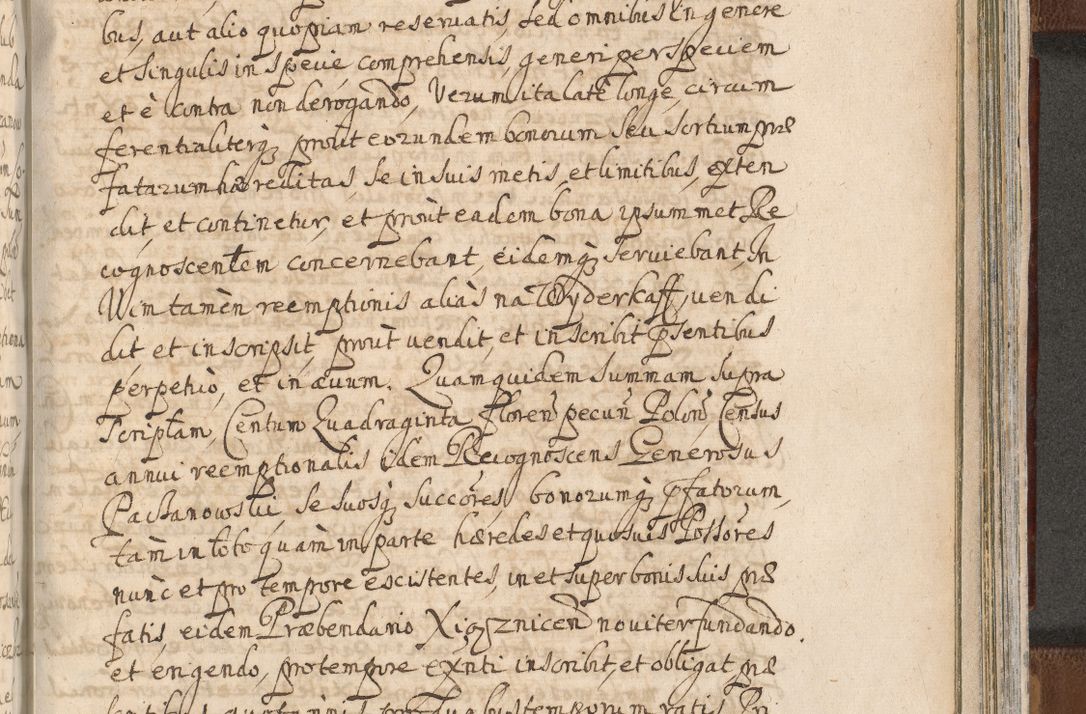 bus, aut alio quopiam reservatis, sed omnibus in genere
et singulis in specie comprehensis, generi per speciem
et è contra non derogando, Verum ita late longe, circum
ferentialiterq3 prout eorundem bonorum seu sortium præ
fatarum hæreditas se in suis metis, et limitibus, exten
dit, et continetur, et prout eadem bona ipsummet Re
cognoscentem concernebant, eidemq3 serviebant, In
Vim tamèn reemptionis aliàs na Wyderkaff, vendi
dit et inscripsit, prout vendit, et inscribit pñsentibus
perpetuò, et in ævum. Quamquidem summam supra
scriptam, Centum Quadraginta floren pecun Polon Census
annui reemptionalis idem Recognoscens Generosus
Pachanowski, se suosq3 succores, bonorumq3 pfatorum,
tàm in toto quàm in parte hæredes et quosuis Possores
nunc et pro tempore existentes, in et super bonis suis præ
fatis, eidem Præbendario Xiązniceñ noviter fundando.
et erigendo, pro tempore exñti inscribit, et obligat præ